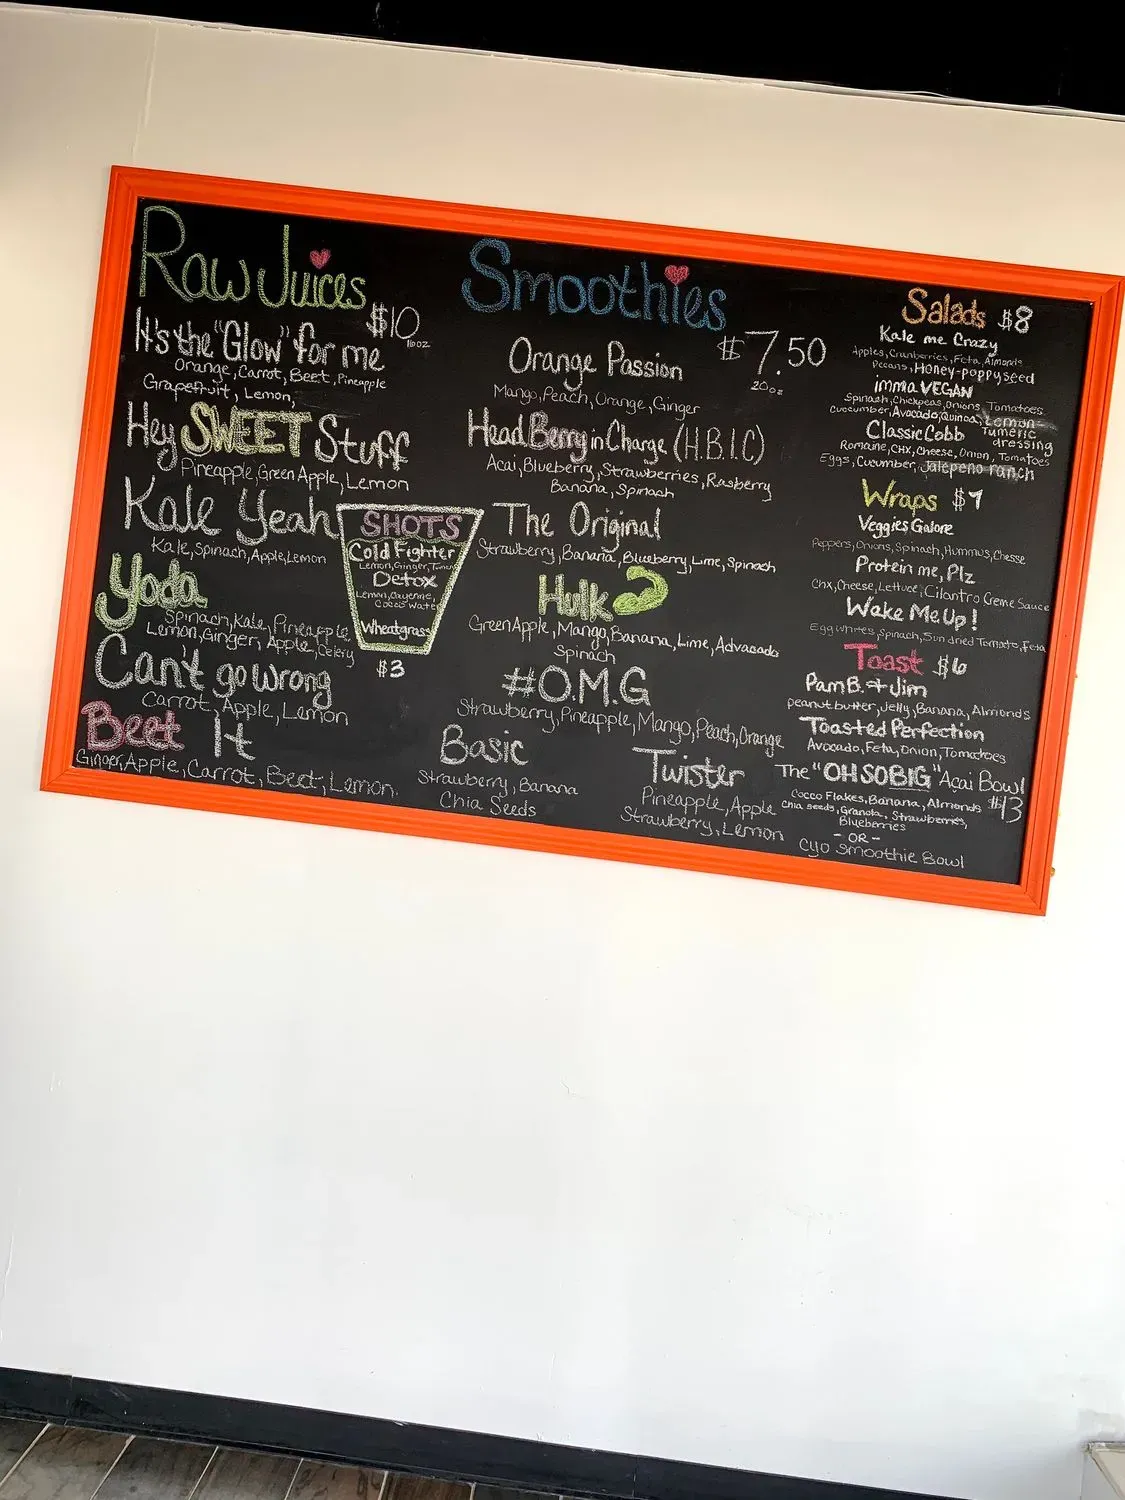 Raw Juices
$10
16oz
It's the "Glow" for me
Orange, Carrot, Beet, Pineapple
Grapefruit, Lemon,
Hey SWEET Stuff
Pineapple, Green Apple, Lemon
Kale Yeah
Kale, Spinach, Apple, Lemon
Yoda
Spinach, Kale, Pineapple
Lemon, Ginger, Apple, Celery
Can't go wrong
Carrot, Apple, Lemon
Beet It
Ginger, Apple, Carrot, Beet, Lemon,
SHOTS
Cold Fighter
Lemon, Ginger,
Detox
Lemon, Cayenne,
Coco Water
Wheatgrass
$3
Smoothies
$7.50
20oz
Orange Passion
Mango, Peach, Orange, Ginger
Head Berry in Charge (H.B.I.C)
Acai, Blueberry, Strawberries, Rasberry
Banana, Spinach
The Original
Strawberry, Banana, Blueberry, Lime, Spinach
Hulk
Green Apple, Mango, Banana, Lime, Advacado
Spinach
#O.M.G
Strawberry, Pineapple, Mango, Peach, Orange
Basic
Strawberry, Banana
Chia Seeds
Twister
Pineapple, Apple
Strawberry, Lemon
Salads $8
Kale me Crazy
Apples, Cranberries, Feta, Almonds
Pecans, Honey-poppyseed
imma VEGAN
Spinach, Chickpeas, Onions, Tomatoes
Cucumber, Avocado, Quinoa, Lemon-
Tumeric
dressing
Classic Cobb
Romaine, CHX, Cheese, Onion, Tomatoes
Eggs, Cucumber, Jalepeno ranch
Wraps $7
Veggies Galore
Peppers, Onions, Spinach, Hummus, Chesse
Protein me, Plz
Chx, Cheese, Lettuce, Cilantro Creme Sauce
Wake Me Up!
Egg whites, Spinach, Sun dried Tomato, Feta
Toast $6
Pam B. + Jim
peanut butter, Jelly, Banana, Almonds
Toasted Perfection
Avocado, Feta, Onion, Tomatoes
The "OH SO BIG" Açai Bowl
$13
Cocco Flakes, Banana, Almonds
Chia seeds, Granola, Strawberries,
Blueberries
- OR -
CYO Smoothie Bowl